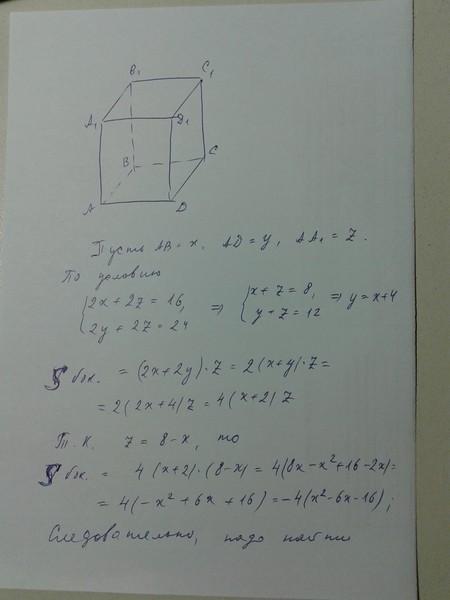 B₁ C₁
A₁ D₁
B C
A D
Пусть AB = x, AD = y, AA₁ = z.
По условию
{2x + 2z = 16, ⇒ {x + z = 8, ⇒ y = x+4
{2y + 2z = 24 {y + z = 12
S бок. = (2x + 2y)·z = 2(x+y)·z =
= 2(2x+4)z = 4(x+2)z
Т.к. z = 8-x, то
S бок. = 4(x+2)·(8-x) = 4(8x-x²+16-2x)=
= 4(-x² + 6x + 16) = -4(x²-6x-16);
Следовательно, надо найти